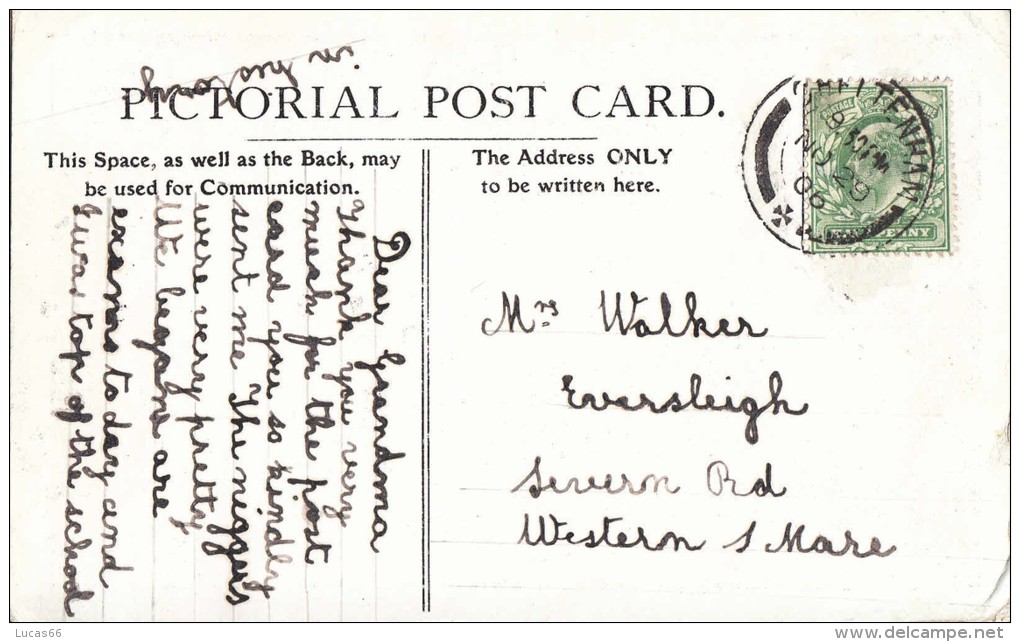 PICTORIAL POST CARD.
This Space, as well as the Back, may
be used for Communication.
The Address ONLY
to be written here.
Dear Grandma
Thank you very
much for the post
card you so kindly
sent me The niggers
were very pretty
We begane are
exams to day and
I was top of the school
in
Mrs Walker
Eversleigh
Severn Rd
Western S Mare
CHELTENHAM
NO 29
06
POSTAGE
Lucas66
delcampe.net